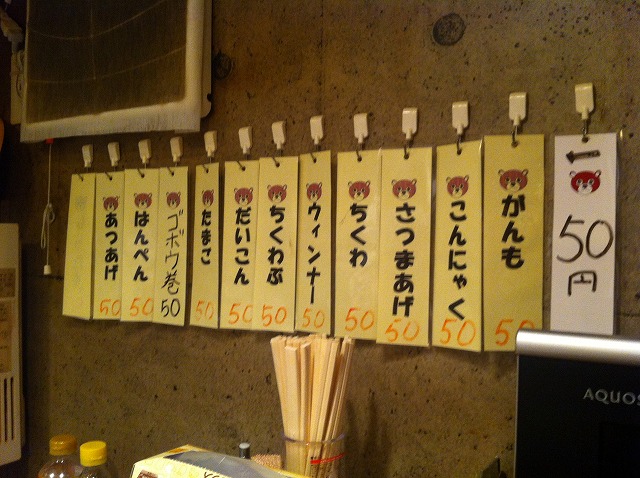 一
50
円
がんも
50
こんにゃく
50
さつまあげ
50
ちくわ
50
ウィンナー
50
ちくわぶ
50
だいこん
50
たまご
50
ゴボウ巻
50
はんぺん
50
あつあげ
50
AQUOS